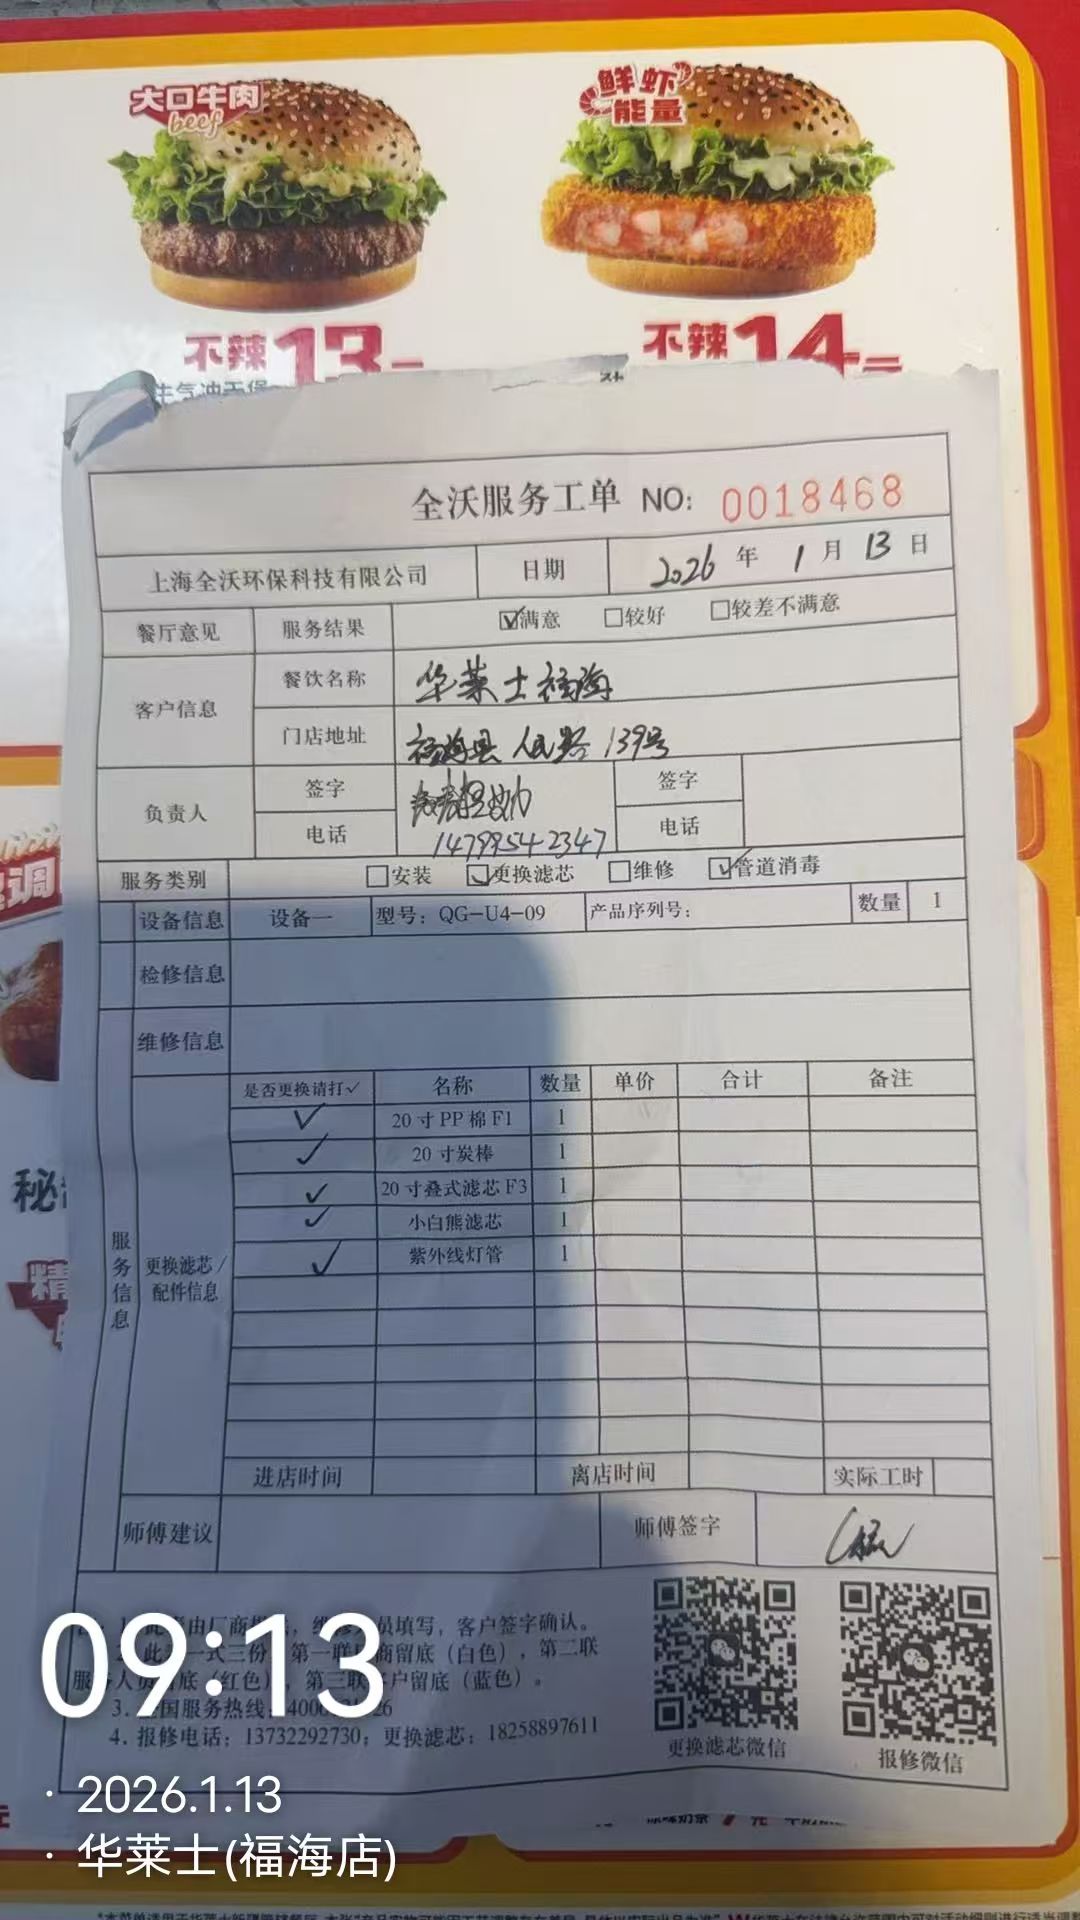 大口牛肉
beef
鲜虾
能量
不辣13元
不辣14元
全沃服务工单 NO: 0018468
上海全沃环保科技有限公司 日期 2026 年 1 月 13 日
餐厅意见 服务结果 ☑满意 □较好 □较差不满意
客户信息 餐饮名称 华莱士福海
门店地址 福海县人民路139号
负责人 签字 签字
电话 14799542347 电话
服务类别 □安装 ☑更换滤芯 □维修 ☑管道消毒
设备信息 设备一 型号: QG-U4-09 产品序列号: 数量 1
检修信息
维修信息
是否更换请打✓ 名称 数量 单价 合计 备注
✓ 20寸PP棉F1 1
✓ 20寸炭棒 1
✓ 20寸叠式滤芯F3 1
✓ 小白熊滤芯 1
✓ 紫外线灯管 1
服务信息
更换滤芯/
配件信息
进店时间 离店时间 实际工时
师傅建议 师傅签字
由厂商 员填写，客户签字确认。
2. 此 一式三份 第一联 商留底（白色），第二联
服 人员 底（红色），第三联 户留底（蓝色）。
3. 国服务热线: 4006 26
4. 报修电话: 13732292730; 更换滤芯: 18258897611
更换滤芯微信
报修微信
09:13
· 2026.1.13
· 华莱士(福海店)